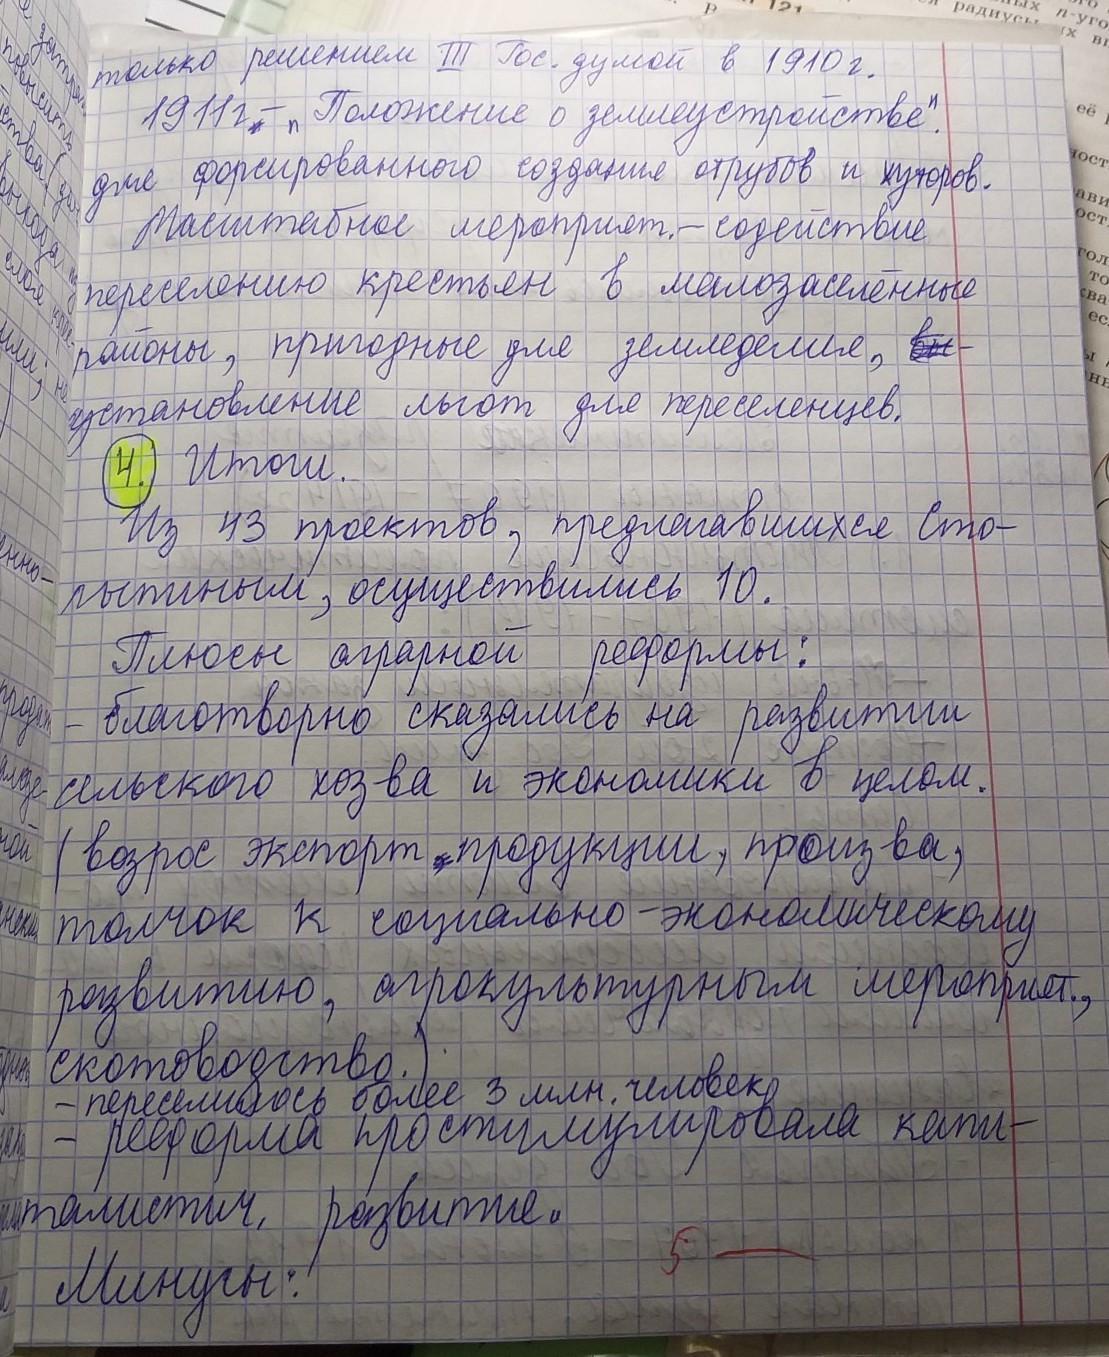 только решением III Гос. думой в 1910 г.
1911 г. – „Положение о землеустройстве".
для форсированного создания отрубов и хуторов.
Масштабное мероприят. – содействие
переселению крестьян в малозаселённые
районы, пригодные для земледелия,
установление льгот для переселенцев.
4. Итоги.
Из 43 проектов, предлагавшихся Сто-
лыпиным, осуществились 10.
Плюсы аграрной реформы:
- благотворно сказались на развитии
сельского хоз-ва и экономики в целом.
(возрос экспорт продукции, произ-ва,
толчок к социально-экономическому
развитию, агрокультурным мероприят.,
скотоводство.)
- переселилось более 3 млн. человек
- реформа простимулировала капи-
талистич. развитие.
5 —
Минусы: